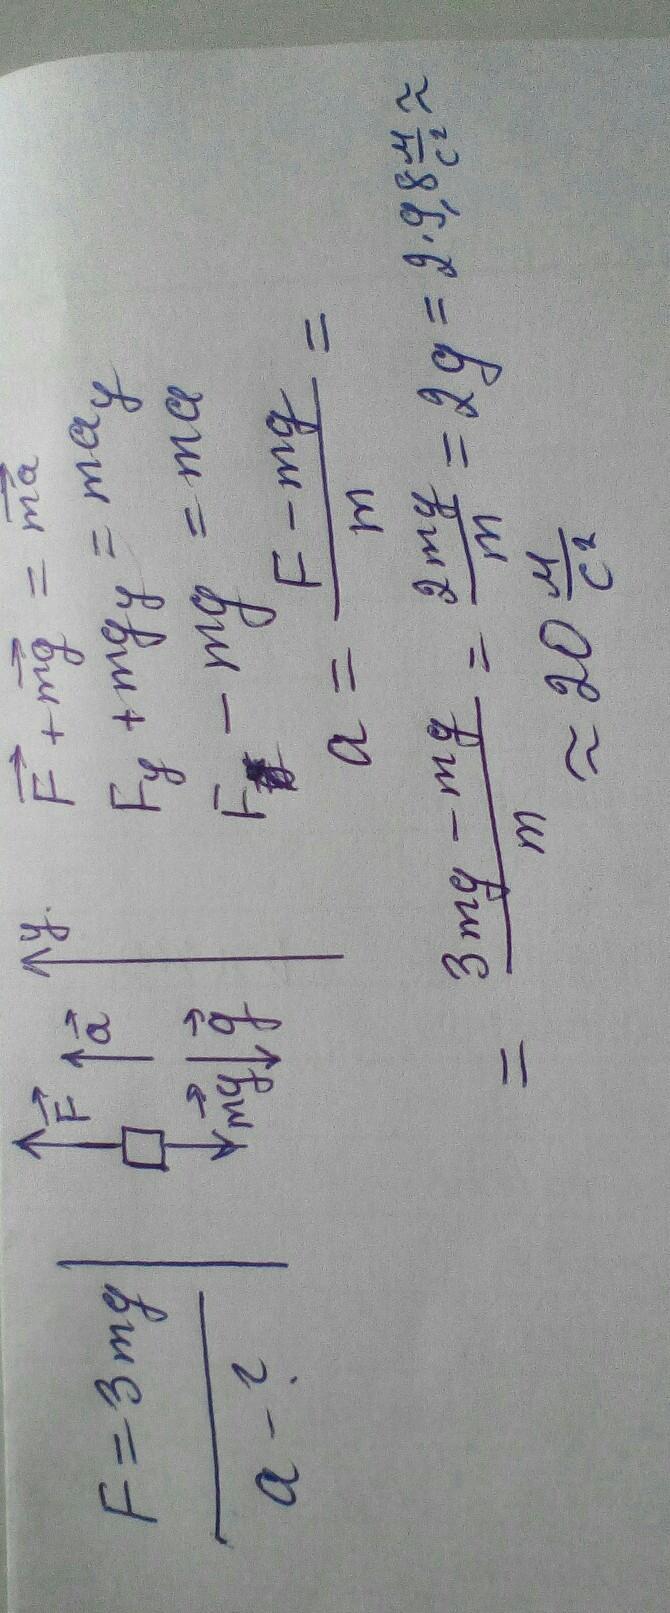 F = 3mg
a - ?
F⃗
a⃗
mg⃗
g⃗
y
F⃗ + mg⃗ = ma⃗
Fy + mgy = may
F - mg = ma
a = (F - mg)/m =
= (3mg - mg)/m = 2mg/m = 2g = 2·9,8 м/с² ≈
≈ 20 м/с²